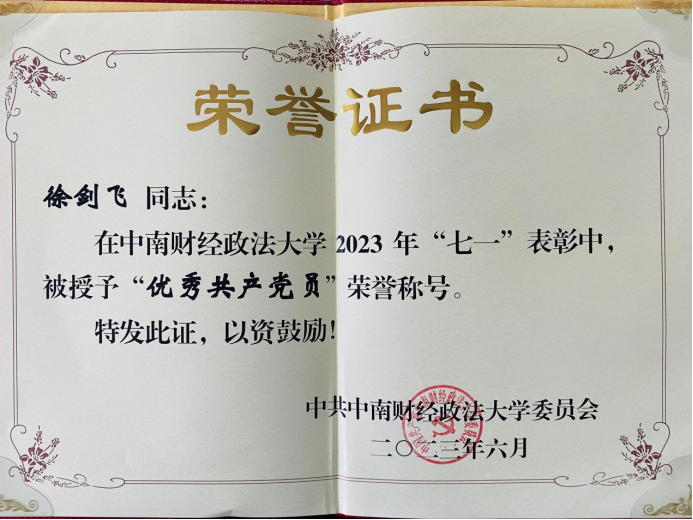 荣誉证书
徐剑飞 同志：
在中南财经政法大学 2023 年“七一”表彰中，
被授予“优秀共产党员”荣誉称号。
特发此证，以资鼓励！
中共中南财经政法大学委员会
二〇二三年六月